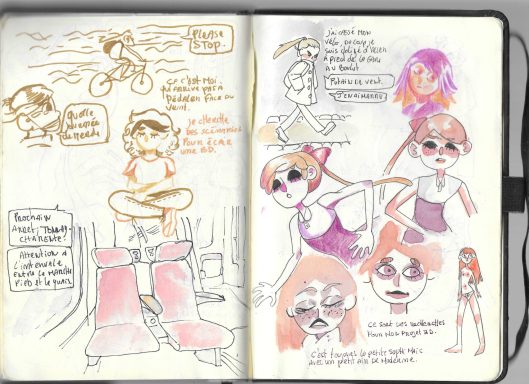 Please
STOP.
ça c'est moi.
qui arrive pas à
pédaler face au
vent.
quelle
journée
de merde
je cherche
des scénarios
pour écrire
une BD.
Prochain
arrêt: Tonnay-
Charente?
Attention à
l'intervalle
entre la marche
pied et le quai.
j'ai cassé mon
vélo, du coup je
suis obligé d'aller
à pied de la gare
au boulot
Putain de vent.
J'en ai marre
Ce sont des
pour nos projet BD.
C'est toujours la petite Sophi mais
avec un petit air de Madeleine.